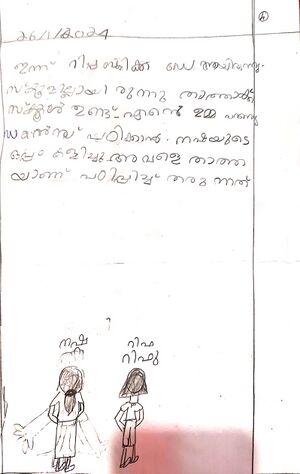 26/1/2024
ഇന്ന് റിപ്പബ്ലിക്ക് ഡേ ആയിരുന്നു.
സ്കൂളില്ലായി രുന്നു താത്താക്ക്
സ്കൂൾ ഉണ്ട് എന്റെ ഉമ്മ പറഞ്ഞു
ഡാൻസ് പഠിക്കാൻ. നഷയുടെ
ഒപ്പം കളിച്ചു അവളെ താത്ത
യാണ് പഠിപ്പിച്ച് തരുന്നത്
നഷ റിഫ
റിഫു